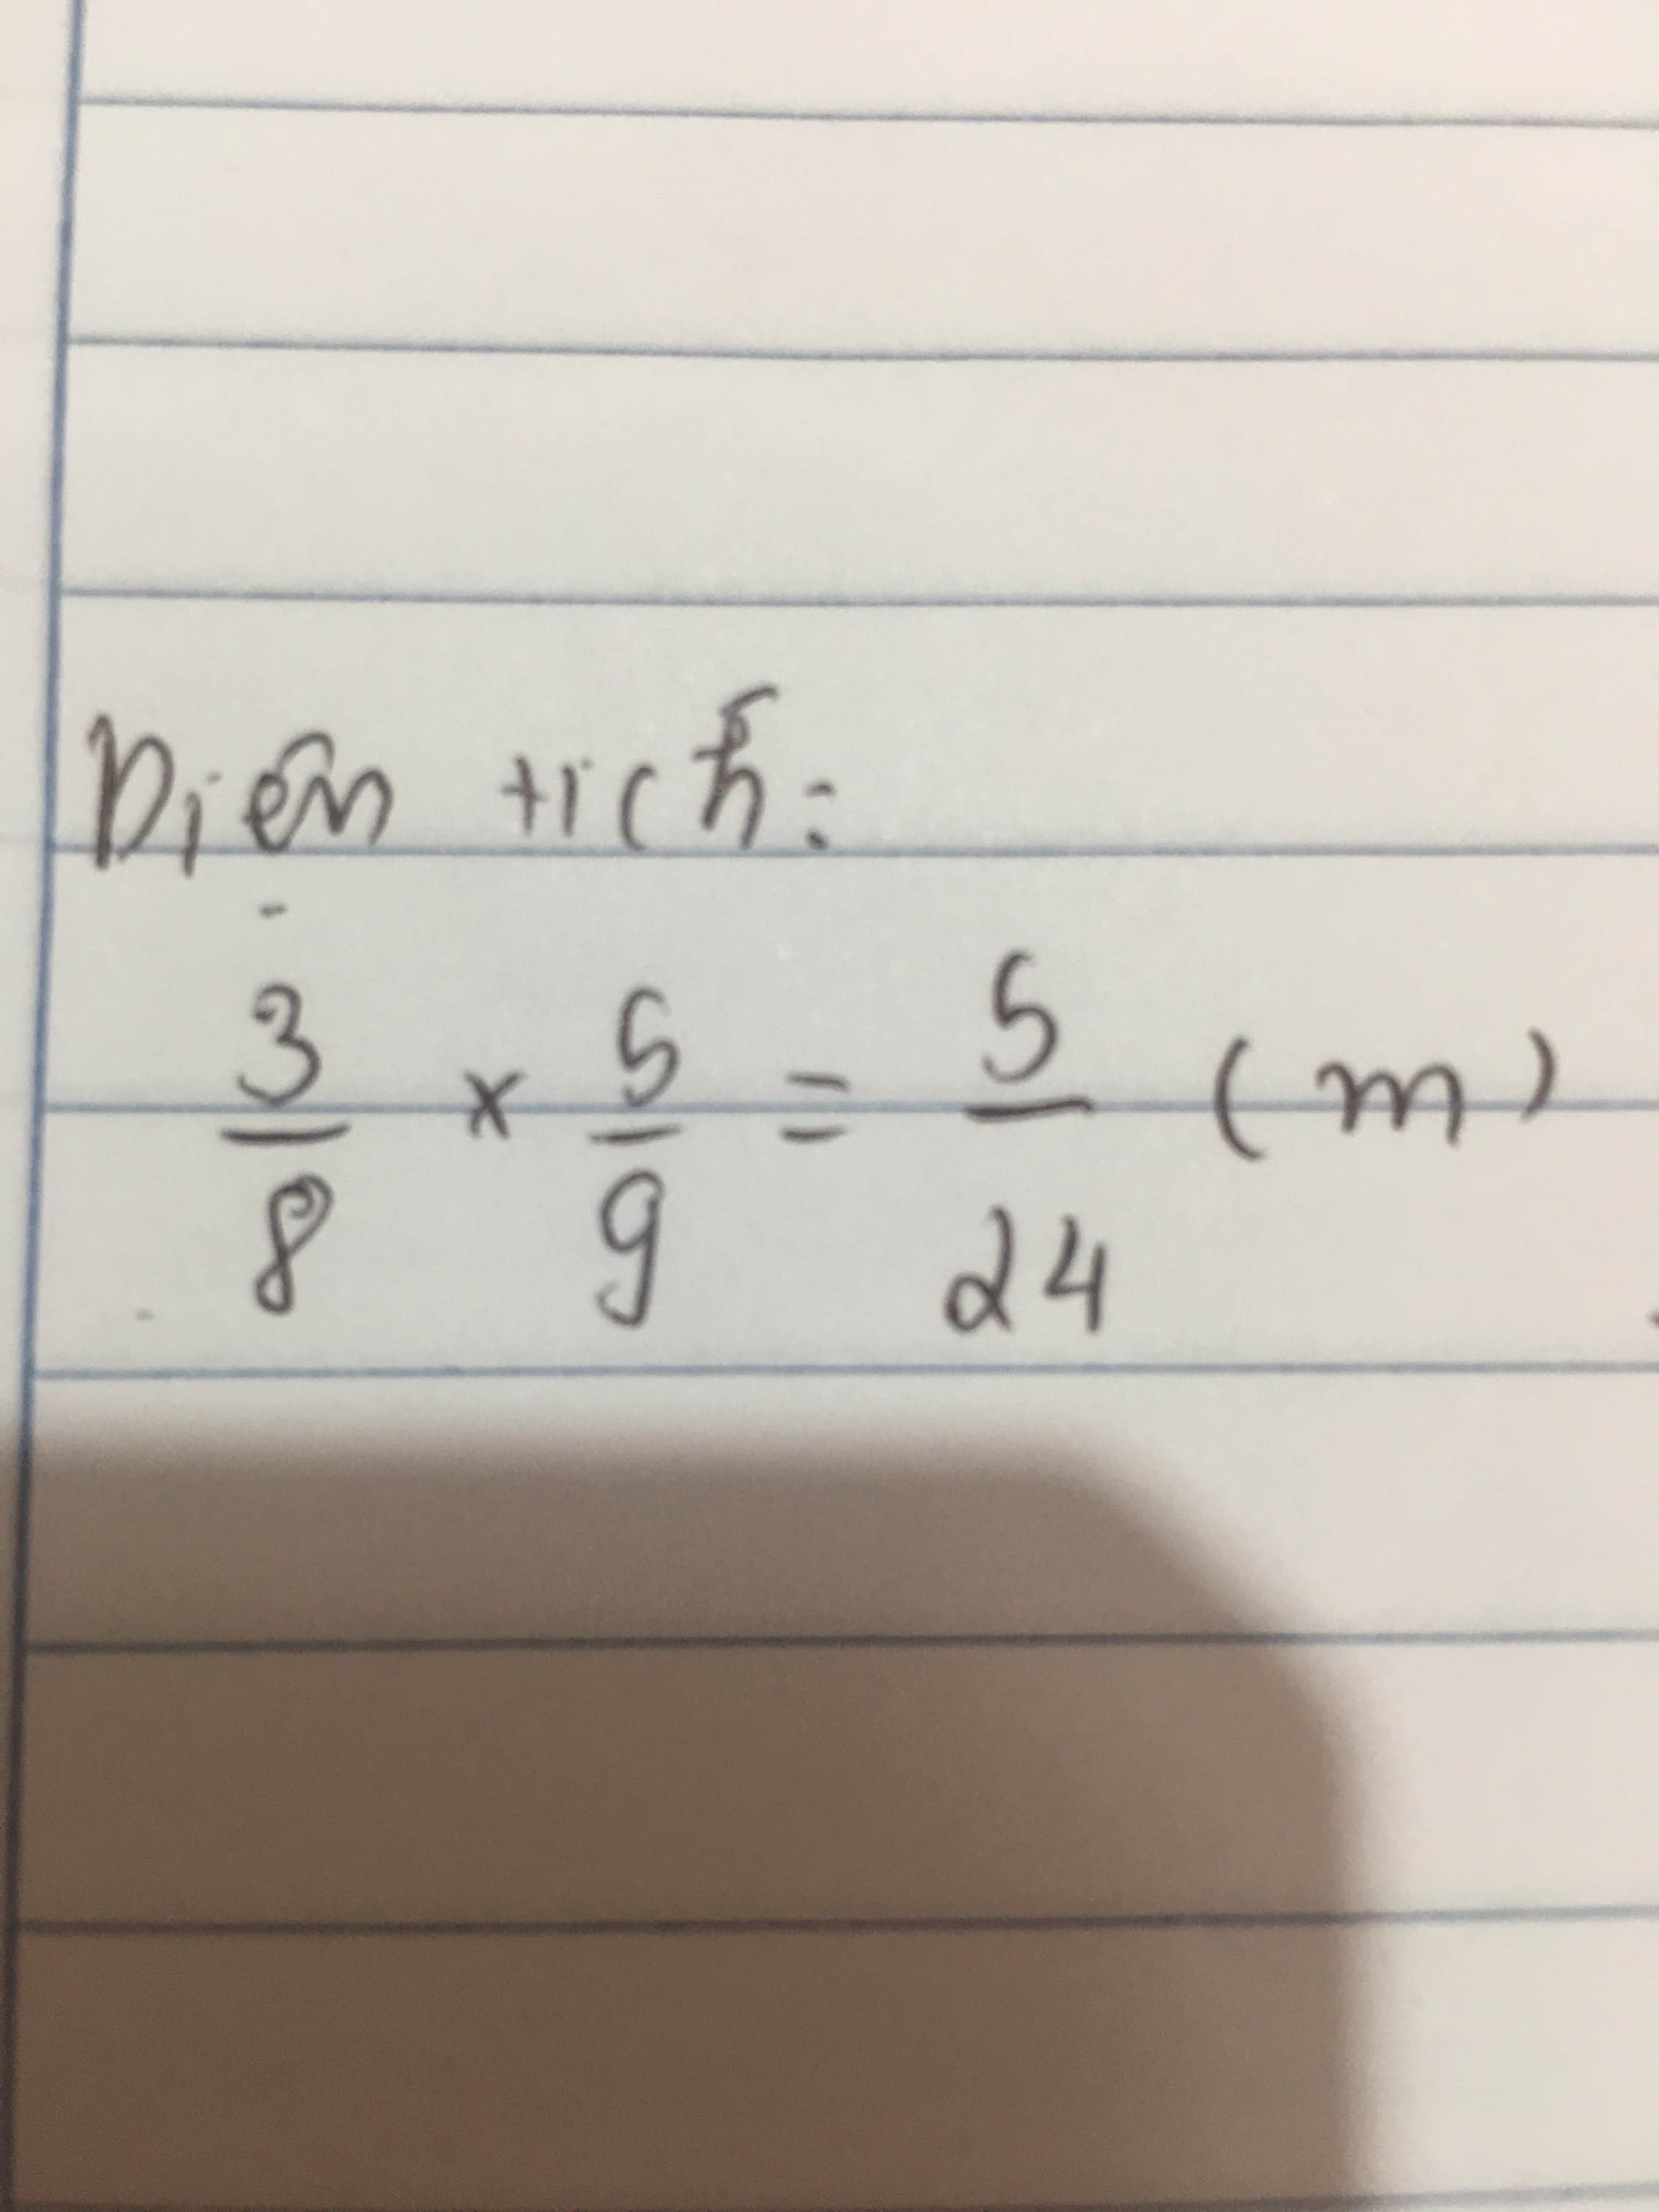 Diện tích:
3/8 × 5/9 = 5/24 (m)